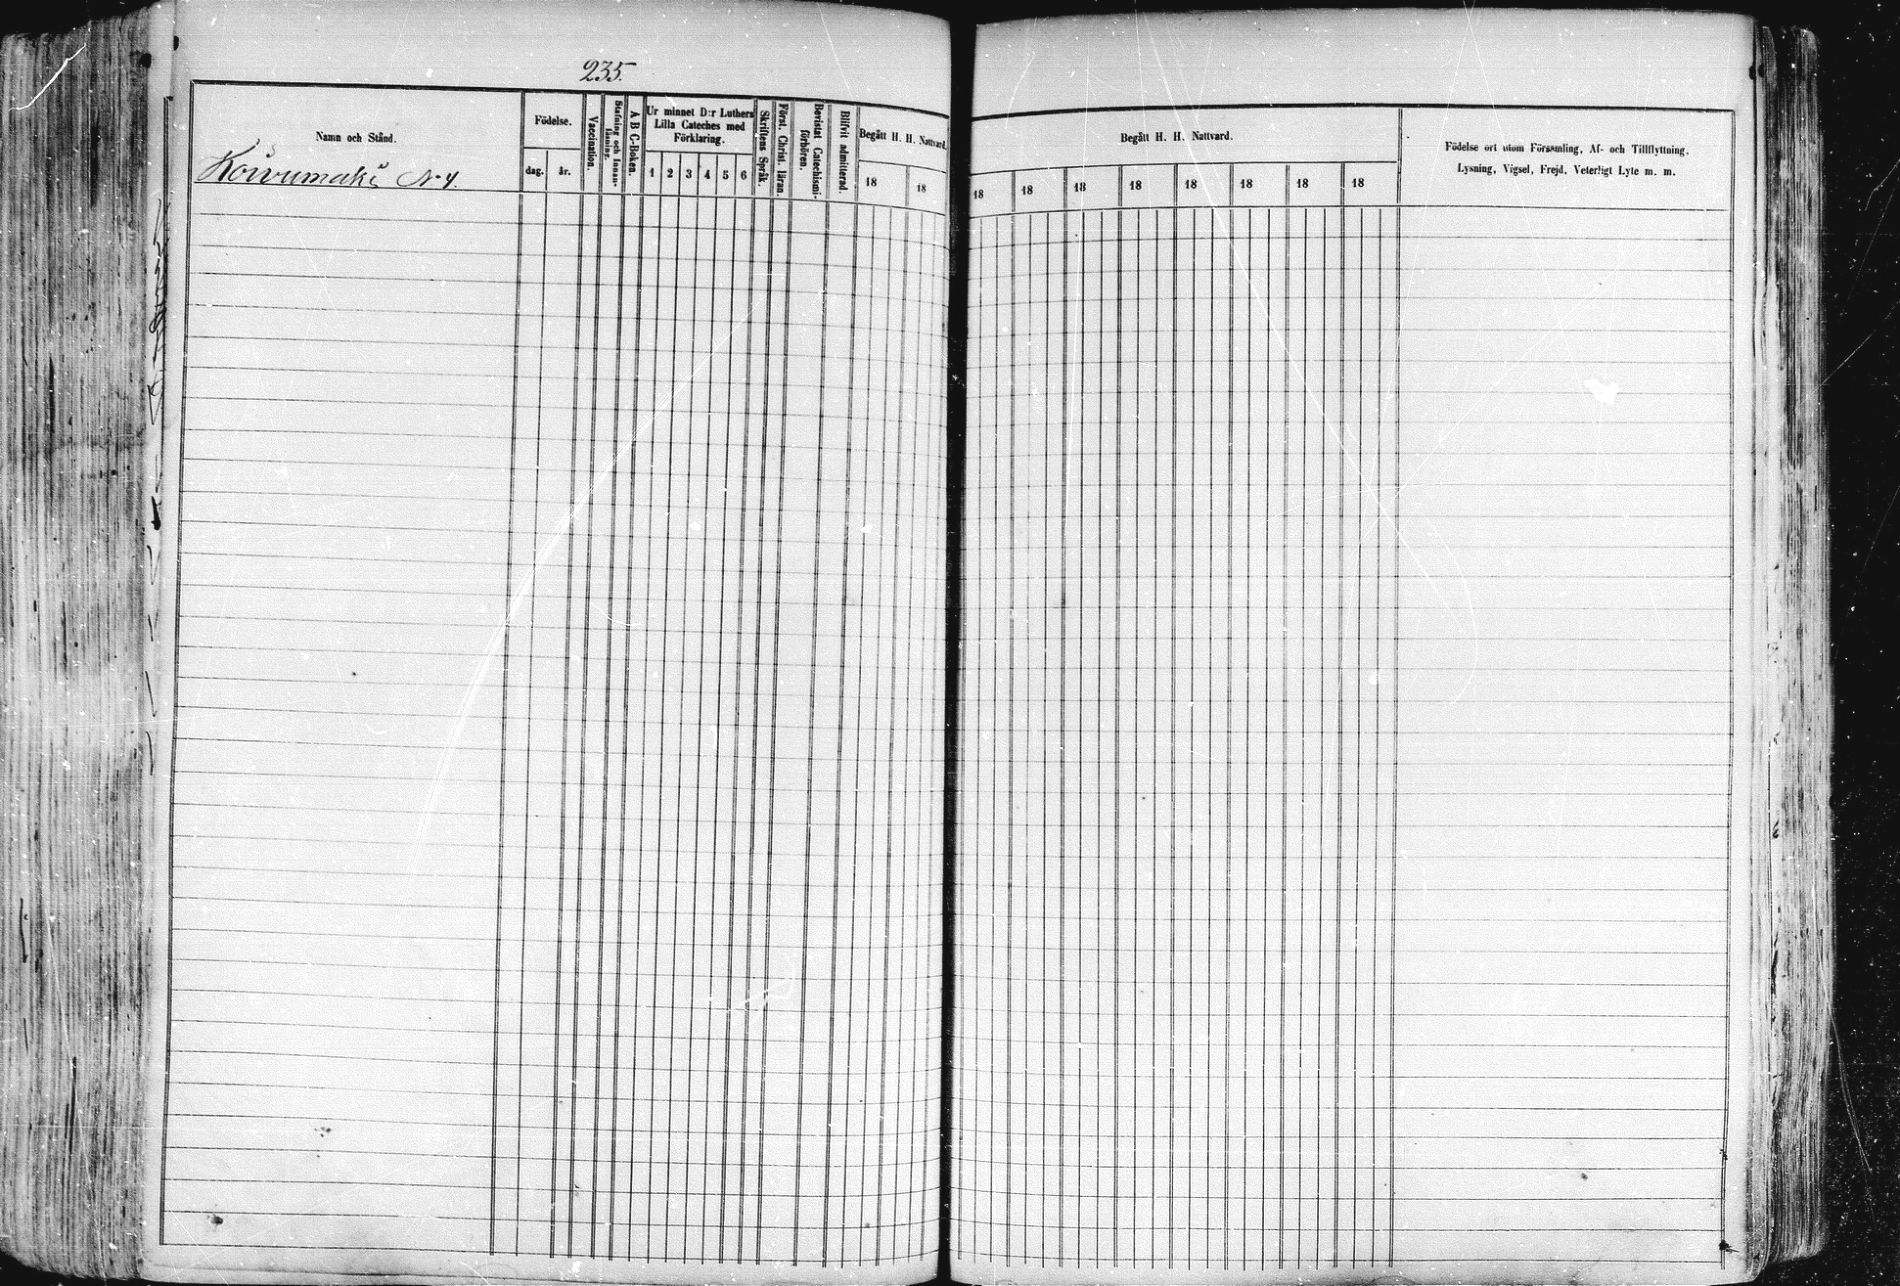 235.
Namn och Stånd.
Koivumäki N 4.
Födelse.
dag.
år.
Vaccination.
Stafning och Innan-
läsning.
A B C-Boken.
Ur minnet D:r Luthers
Lilla Cateches med
Förklaring.
1 2 3 4 5 6
Skriftens Språk.
Först. Christ. läran.
Bevistat Catechismi-
förhören.
Blifvit admitterad.
Begått H. H. Nattvard.
18 18
Begått H. H. Nattvard.
18 18 18 18 18 18 18 18
Födelse ort utom Församling, Af- och Tillflyttning,
Lysning, Vigsel, Frejd, Veterligt Lyte m. m.